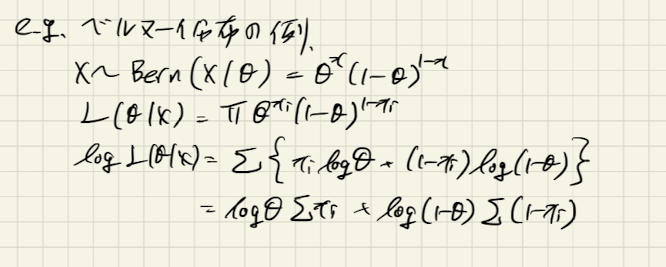 e.g. ベルヌーイ分布の例.
X〜Bern(X|θ) = θ^x (1-θ)^{1-x}
L(θ|x) = Π θ^{x_i} (1-θ)^{1-x_i}
log L(θ|x) = Σ { x_i log θ + (1-x_i) log (1-θ) }
= log θ Σ x_i + log (1-θ) Σ (1-x_i)